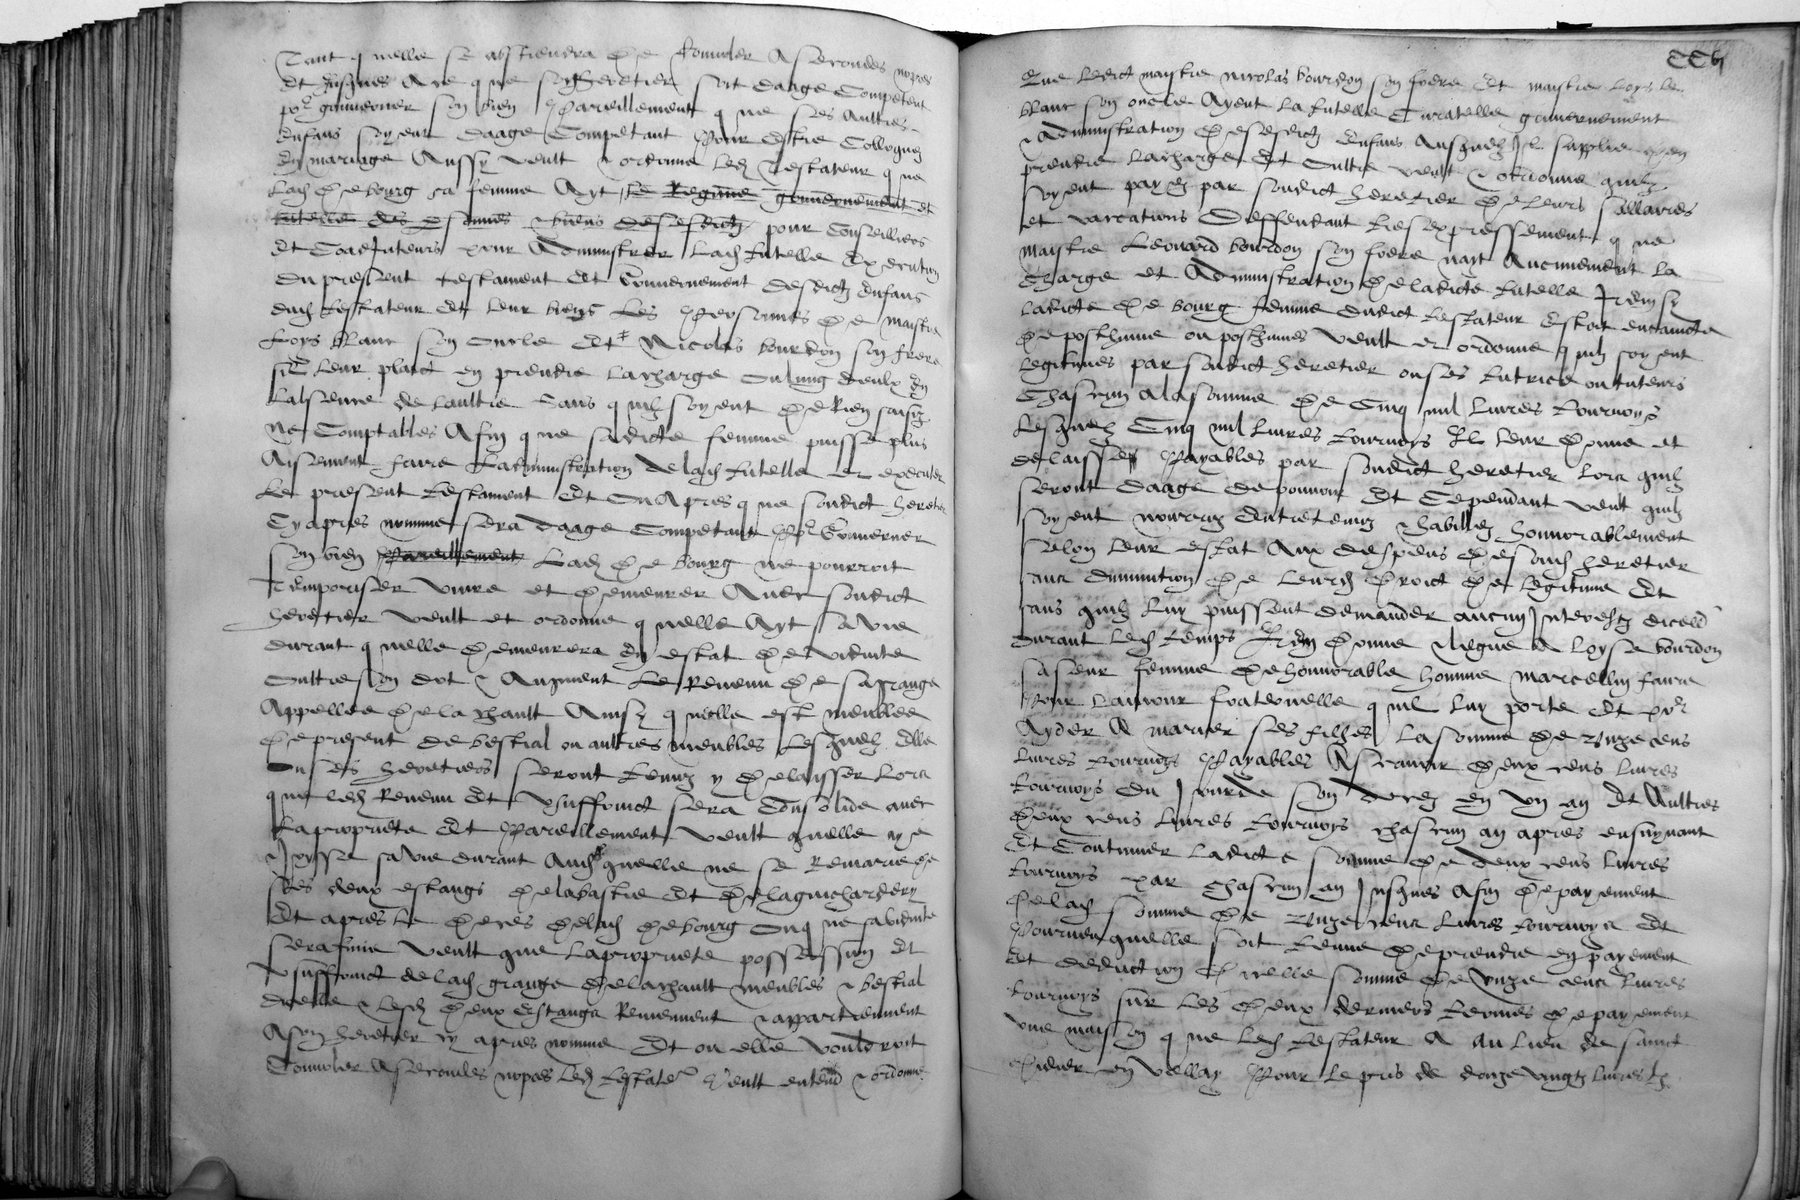 Tant quelle se abstiendra de conuoler a secondes nopces
et jusques a ce que son heretier soit daage competent
por gouuerner son bien Pareillement que ses aultres
enfans soyent daage competant pour estre colloquez
en mariage Aussy veult & ordonne led testateur que
lad de bourg sa femme ayt le regime gouuernement et
tutelle des psonnes & biens de sesdictz pour conseilliers
et coadjuteurs pour administrer lad tutelle execution
du present testament et gouuernement desdictz enfans
dud testateur et leur biens les personnes de maistre
loys blanc son oncle et Nicolas bourdon son frere
sil leur plaict en prendre la charge ou lung deulx en
labsence de laultre sans quilz soyent de rien saisiz
ne comptables afin que sadicte femme puisse plus
aisement faire ladministration de lad tutelle et executer
le present testament et ou apres que sondict heretier
cy apres nomme sera daage competant por gouuerner
son bien Pareillement lad de bourg ne pourroit
temporiser viure et demeurer auec sondict
heretier veult et ordonne quelle ayt sa vie
durant quelle demeurera en estat de viduite
oultre son dot & augment le reuenu de sa grange
appellee de la chault ainsy quelle est meublee
de present de bestial ou aultres meubles lesquelz elle
ou ses heretiers seront tenuz y delaisser lors
que led reuenu et vsuffruict sera consolide auec
la propriete et pareillement veult quelle aye
& joysse sa vie durant quelle ne se remarie de
ses deux estangs de la bastie et de
et apres le deces de lad de bourg ou que sa viduite
sera finie veult que la propriete possession et
vsuffruict de lad grange de la chault meubles & bestial
dicelle & lesd deux estangs reuiennent & appartiennent
a son heretier cy apres nomme et ou elle vouldroit
conuoler a secondes nopces led testateur veult entend & ordonne
CCvj
que ledict maistre nicolas bourdon son frere et maistre loys le
blanc son oncle ayent la tutelle curatelle gouuernement
& administration de sesdictz enfans ausquelz il supplie den
prendre la charge et oultre veult & ordonne quilz
soyent payez par sondict heretier de leurs sallaires
et vaccations deffendant tresexpressement que
maistre leonard bourdon son frere nayt aucunement la
charge et administration de ladicte tutelle Item sy
ladicte de bourg femme dudict testateur estoit enceincte
de posthume ou posthumes veult et ordonne quilz soyent
legitimes par sondict heretier ou ses tutrice ou tuteurs
chascun a la somme de cinq mil liures tournoys
lesquelz cinq mil liures tournoys il leur donne et
delaisse payables par sondict heretier lors quilz
seront daage de pouuoir et cependant veut quilz
soyent nourriz entretenuz & habillez honnorablement
selon leur estat aux despens de sond heretier
sans diminution de leurd droict de legitime et
sans quilz luy puissent demander aucun interestz dicelle
durant led temps Item donne & legue a loyse bourdon
sa seur femme de honnorable homme marcellin faure
pour lamour fraternelle quil luy porte et por
ayder a marier ses filhes la somme de vnze cens
liures tournoys payables ascauoir deux cens liures
tournoys du jour de son deces en vn an et aultres
deux cens liures tournoys chascun an apres ensuyuant
et continuer ladicte somme de deux cens liures
tournoys par chascun an jusques a fin de payement
de lad somme de vnze cens liures tournoys et
pourueu quelle soit tenue de prendre en payement
et deduction dicelle somme de vnze cens liures
tournoys sur les deux derniers termes de payement
vne maison que led testateur a au lieu de sainct
didier en vellay pour le pris de douze vingtz liures tz